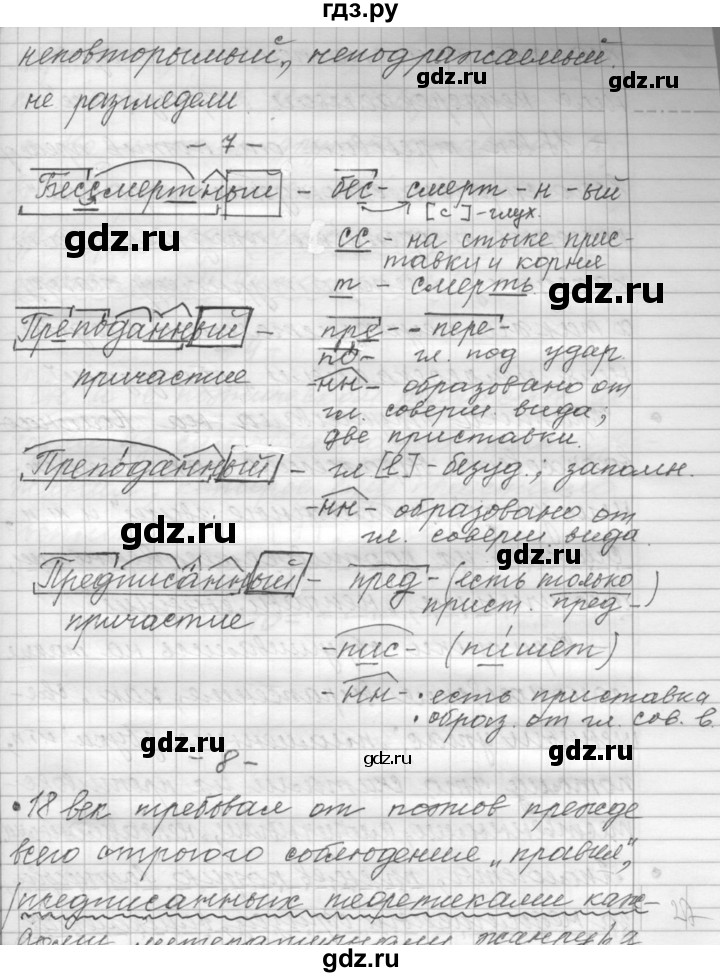 гдз.ру
неповторимый, неподражаемый.
gdz.ru
не разглядели
gdz.ru
- 7 -
Бессмертный - бес- смерт -н -ый
[с]-глух.
gdz.ru
сс - на стыке прис-
тавки и корня
т - смерть.
gdz.ru
Преподанный - пре- -пере-
причастие
по- гл. под удар.
-нн- образовано от
гл. соверш. вида;
две приставки.
Преподанный - гл [е]-безуд.; запомн.
-нн- образовано от
gdz.ru
гл. соверш. вида.
gdz.ru
Предписанный - пред-(есть только
прист. пред-)
причастие
-пис- (пишет)
-нн- · есть приставка
· образ. от гл. сов. в.
gdz.ru
- 8 -
gdz.ru
gdz.ru
· 18 век требовал от поэтов прежде
всего строгого соблюдения „правил",
предписанных теоретиками каж-
gdz.ru